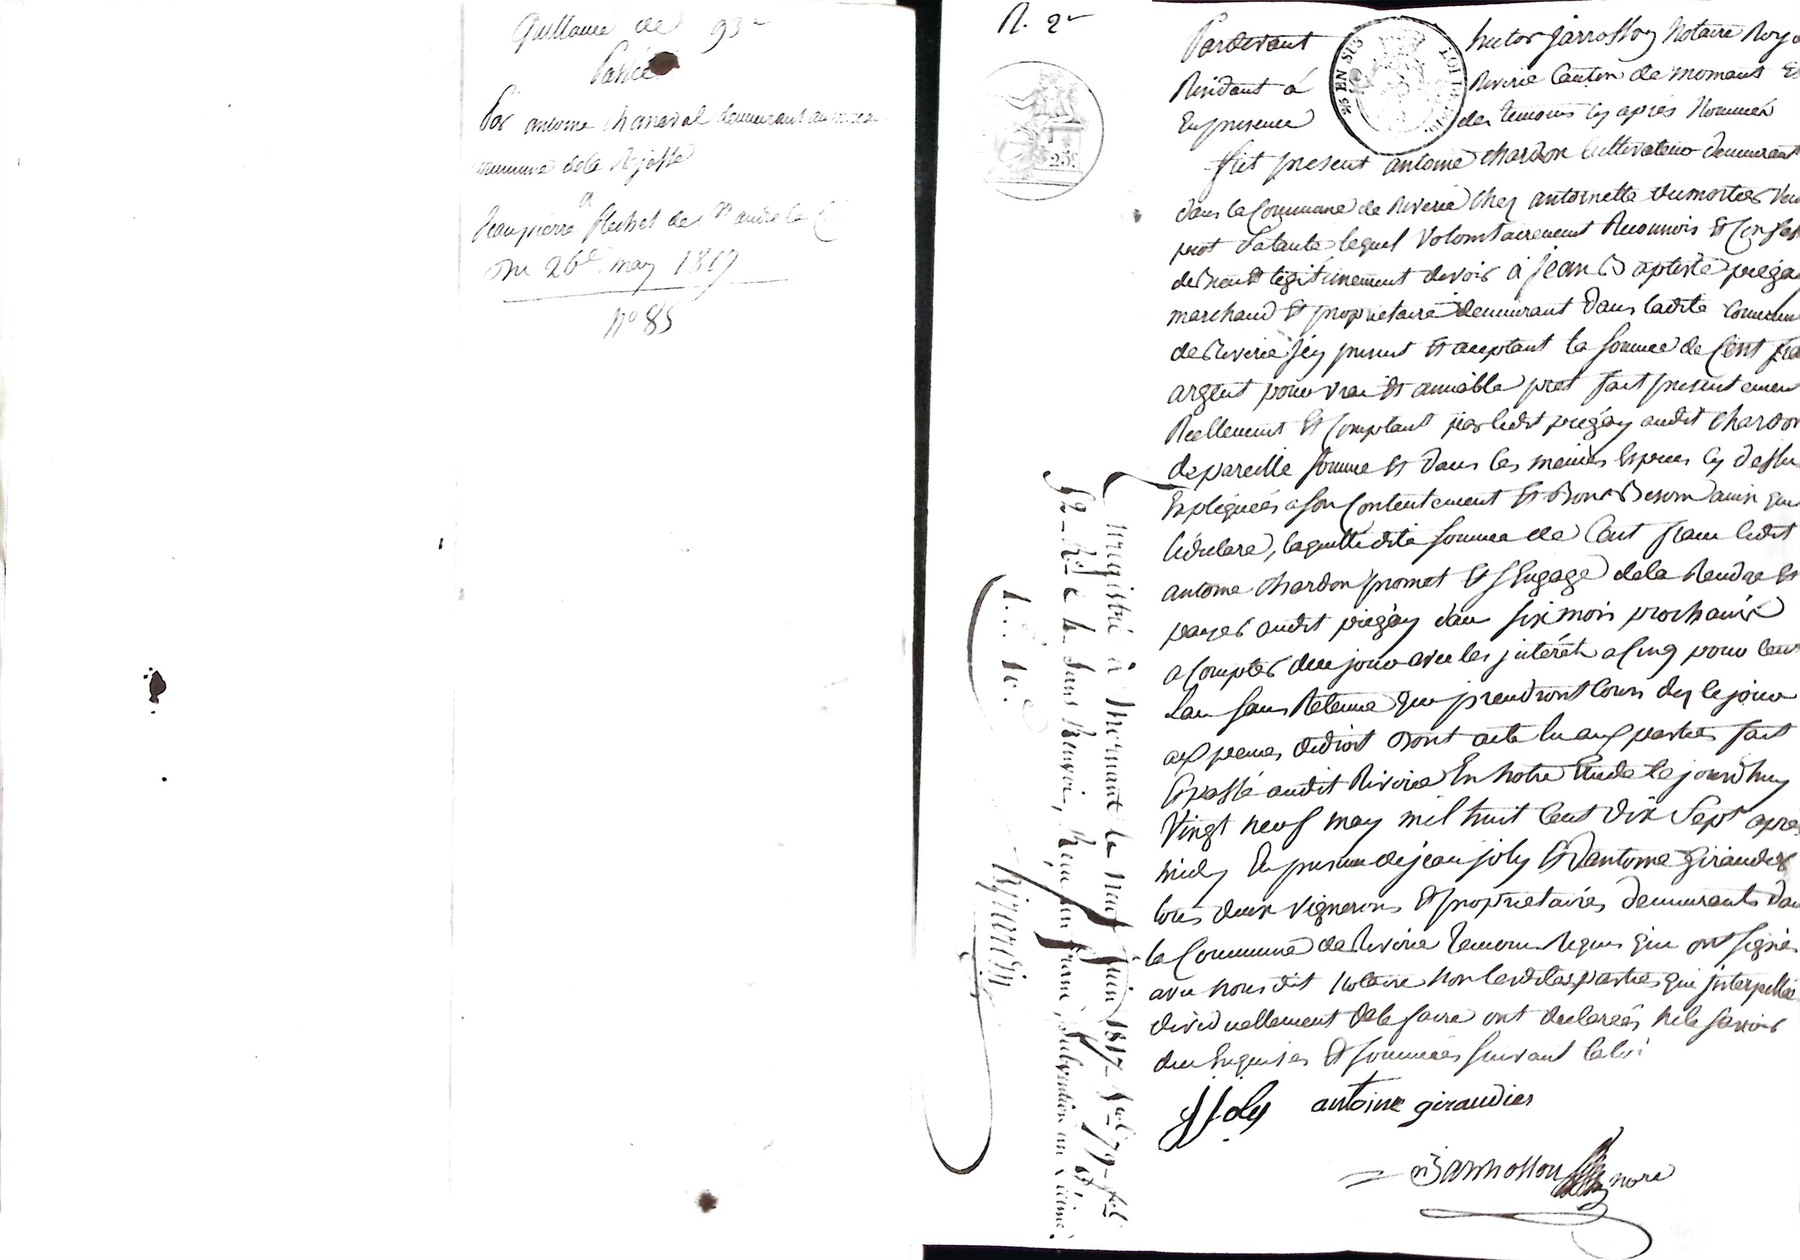 Quittance de 93 f
Passée
Par antoine chanaval demeurant au
commune de la Rajasse
a
Jean pierre flechet de St andré la C
Du 26 may 1817
N° 85
N. 2
Pardevant hector Jarrosson Notaire Roya
Résidant à Riverie Canton de mornant Et
En presence des temoins cy après Nommés
fut present antoine chardon Cultivateur demeurant
dans la Commune de Riverie chez antoinette dumortier veuve
lequel volontairement Reconnois Et Confesse
devoir Et légitimement devoir à jean Baptiste piegay
marchand Et proprietaire demeurant dans ladite commune
de Riverie icy present Et acceptant la somme de Cent fra
argent pour vrai Et amiable pret fait presentement
Réellement Et Comptant par ledit piegay audit chardon
de pareille somme Et dans les memes Especes cy dessus
Expliquées a son Contentement Et Bon Besoin ainsi que
lédéclare, laquelle dite somme de Cent franc ledit
antoine chardon promet Et s'Engage de la Rendre Et
payer audit piegay dau six mois prochains
a Compter de ce jour avec les intérêts a Cinq pour Cent
Lan sans Retenue qui prendront Cours dez le jour
aux peines de droit Dont acte lu aux parties fait
Et passé audit Riverie En notre Etude le jourdhuy
Vingt neuf may mil huit Cent dix Sept après
midy En presence de jean joly Et d'antoine Giraudier
tous deux vignerons Et proprietaires demeurants dans
la Commune de Riverie temoins Requis qui ont signés
avec nous dit Notaire non lesdites parties qui interpellées
dividuellement de le faire ont declarées ne le savoir
de ce Enquises Et sommées suivant la loi
jjoly antoine giraudier
Jarrosson nore
Enregistré à Mornant le neuf juin 1817 fol. 79
52 Rº c. 4. sans Renvoi, Reçu un franc, subvention un décime
1.. 10.c
Girardin
25 EN SUS
25c